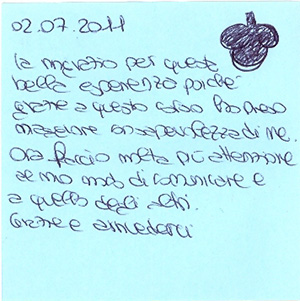 02.07.2011
La ringrazio per questa
bella esperienza poichè
grazie a questo corso ho preso
maggiore consapevolezza di me.
Ora faccio molta più attenzione
al mio modo di comunicare e
a quello degli altri.
Grazie e arrivederci